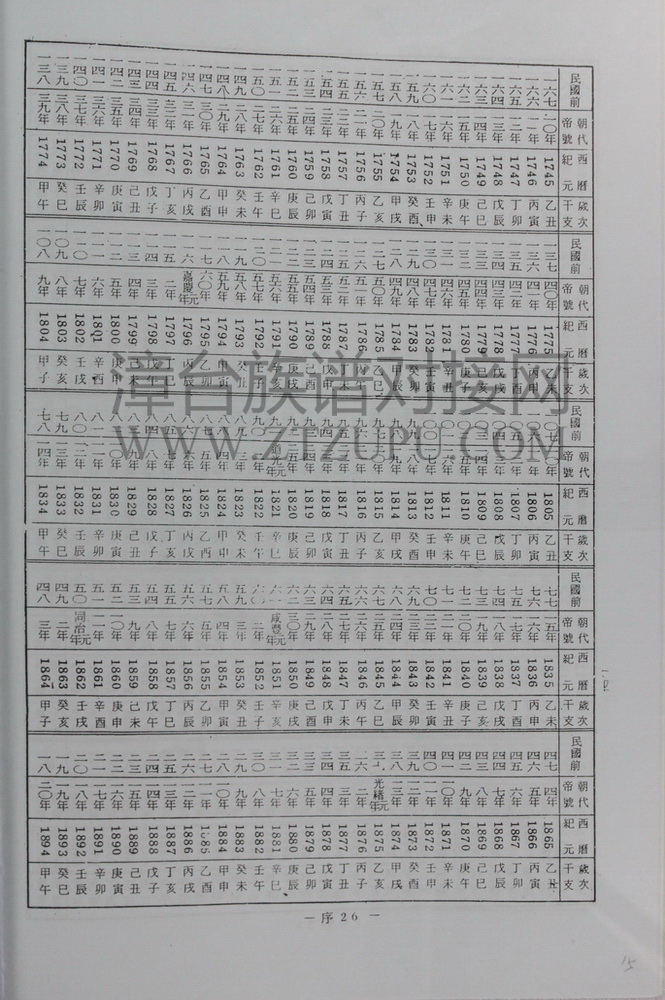 民國前 朝代帝號 西曆紀元 歲次干支
一六七 一〇年 1745 乙丑
一六六 一一年 1746 丙寅
一六五 一二年 1747 丁卯
一六四 一三年 1748 戊辰
一六三 一四年 1749 己巳
一六二 一五年 1750 庚午
一六一 一六年 1751 辛未
一六〇 一七年 1752 壬申
一五九 一八年 1753 癸酉
一五八 一九年 1754 甲戌
一五七 二〇年 1755 乙亥
一五六 二一年 1756 丙子
一五五 二二年 1757 丁丑
一五四 二三年 1758 戊寅
一五三 二四年 1759 己卯
一五二 二五年 1760 庚辰
一五一 二六年 1761 辛巳
一五〇 二七年 1762 壬午
一四九 二八年 1763 癸未
一四八 二九年 1764 甲申
一四七 三〇年 1765 乙酉
一四六 三一年 1766 丙戌
一四五 三二年 1767 丁亥
一四四 三三年 1768 戊子
一四三 三四年 1769 己丑
一四二 三五年 1770 庚寅
一四一 三六年 1771 辛卯
一四〇 三七年 1772 壬辰
一三九 三八年 1773 癸巳
一三八 三九年 1774 甲午
民國前 朝代帝號 西曆紀元 歲次干支
一三七 四〇年 1775 乙未
一三六 四一年 1776 丙申
一三五 四二年 1777 丁酉
一三四 四三年 1778 戊戌
一三三 四四年 1779 己亥
一三二 四五年 1780 庚子
一三一 四六年 1781 辛丑
一三〇 四七年 1782 壬寅
一二九 四八年 1783 癸卯
一二八 四九年 1784 甲辰
一二七 五〇年 1785 乙巳
一二六 五一年 1786 丙午
一二五 五二年 1787 丁未
一二四 五三年 1788 戊申
一二三 五四年 1789 己酉
一二二 五五年 1790 庚戌
一二一 五六年 1791 辛亥
一二〇 五七年 1792 壬子
一一九 五八年 1793 癸丑
一一八 五九年 1794 甲寅
一一七 六〇年 1795 乙卯
一一六 嘉慶元年 1796 丙辰
一一五 二年 1797 丁巳
一一四 三年 1798 戊午
一一三 四年 1799 己未
一一二 五年 1800 庚申
一一一 六年 1801 辛酉
一一〇 七年 1802 壬戌
一〇九 八年 1803 癸亥
一〇八 九年 1804 甲子
民國前 朝代帝號 西曆紀元 歲次干支
一〇七 一〇年 1805 乙丑
一〇六 一一年 1806 丙寅
一〇五 一二年 1807 丁卯
一〇四 一三年 1808 戊辰
一〇三 一四年 1809 己巳
一〇二 一五年 1810 庚午
一〇一 一六年 1811 辛未
一〇〇 一七年 1812 壬申
九九 一八年 1813 癸酉
九八 一九年 1814 甲戌
九七 二〇年 1815 乙亥
九六 二一年 1816 丙子
九五 二二年 1817 丁丑
九四 二三年 1818 戊寅
九三 二四年 1819 己卯
九二 二五年 1820 庚辰
九一 道光元年 1821 辛巳
九〇 二年 1822 壬午
八九 三年 1823 癸未
八八 四年 1824 甲申
八七 五年 1825 乙酉
八六 六年 1826 丙戌
八五 七年 1827 丁亥
八四 八年 1828 戊子
八三 九年 1829 己丑
八二 一〇年 1830 庚寅
八一 一一年 1831 辛卯
八〇 一二年 1832 壬辰
七九 一三年 1833 癸巳
七八 一四年 1834 甲午
民國前 朝代帝號 西曆紀元 歲次干支
七七 一五年 1835 乙未
七六 一六年 1836 丙申
七五 一七年 1837 丁酉
七四 一八年 1838 戊戌
七三 一九年 1839 己亥
七二 二〇年 1840 庚子
七一 二一年 1841 辛丑
七〇 二二年 1842 壬寅
六九 二三年 1843 癸卯
六八 二四年 1844 甲辰
六七 二五年 1845 乙巳
六六 二六年 1846 丙午
六五 二七年 1847 丁未
六四 二八年 1848 戊申
六三 二九年 1849 己酉
六二 三〇年 1850 庚戌
六一 咸豐元年 1851 辛亥
六〇 二年 1852 壬子
五九 三年 1853 癸丑
五八 四年 1854 甲寅
五七 五年 1855 乙卯
五六 六年 1856 丙辰
五五 七年 1857 丁巳
五四 八年 1858 戊午
五三 九年 1859 己未
五二 一〇年 1860 庚申
五一 一一年 1861 辛酉
五〇 同治元年 1862 壬戌
四九 二年 1863 癸亥
四八 三年 1864 甲子
民國前 朝代帝號 西曆紀元 歲次干支
四七 四年 1865 乙丑
四六 五年 1866 丙寅
四五 六年 1867 丁卯
四四 七年 1868 戊辰
四三 八年 1869 己巳
四二 九年 1870 庚午
四一 一〇年 1871 辛未
四〇 一一年 1872 壬申
三九 一二年 1873 癸酉
三八 一三年 1874 甲戌
三七 光緒元年 1875 乙亥
三六 二年 1876 丙子
三五 三年 1877 丁丑
三四 四年 1878 戊寅
三三 五年 1879 己卯
三二 六年 1880 庚辰
三一 七年 1881 辛巳
三〇 八年 1882 壬午
二九 九年 1883 癸未
二八 一〇年 1884 甲申
二七 一一年 1885 乙酉
二六 一二年 1886 丙戌
二五 一三年 1887 丁亥
二四 一四年 1888 戊子
二三 一五年 1889 己丑
二二 一六年 1890 庚寅
二一 一七年 1891 辛卯
二〇 一八年 1892 壬辰
一九 一九年 1893 癸巳
一八 二〇年 1894 甲午
漳台族谱对接网
WWW.ZTZUPU.COM
— 序 26 —
15